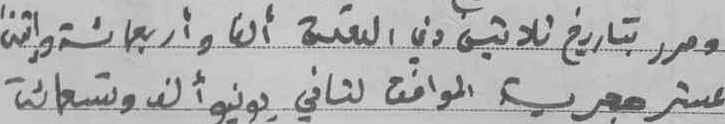 وحرر بتاريخ ثلاثين ذي القعدة ألف وأربعمائة وإثنا
عشر هجرية الموافق لثاني يونيو ألف وتسعمائة